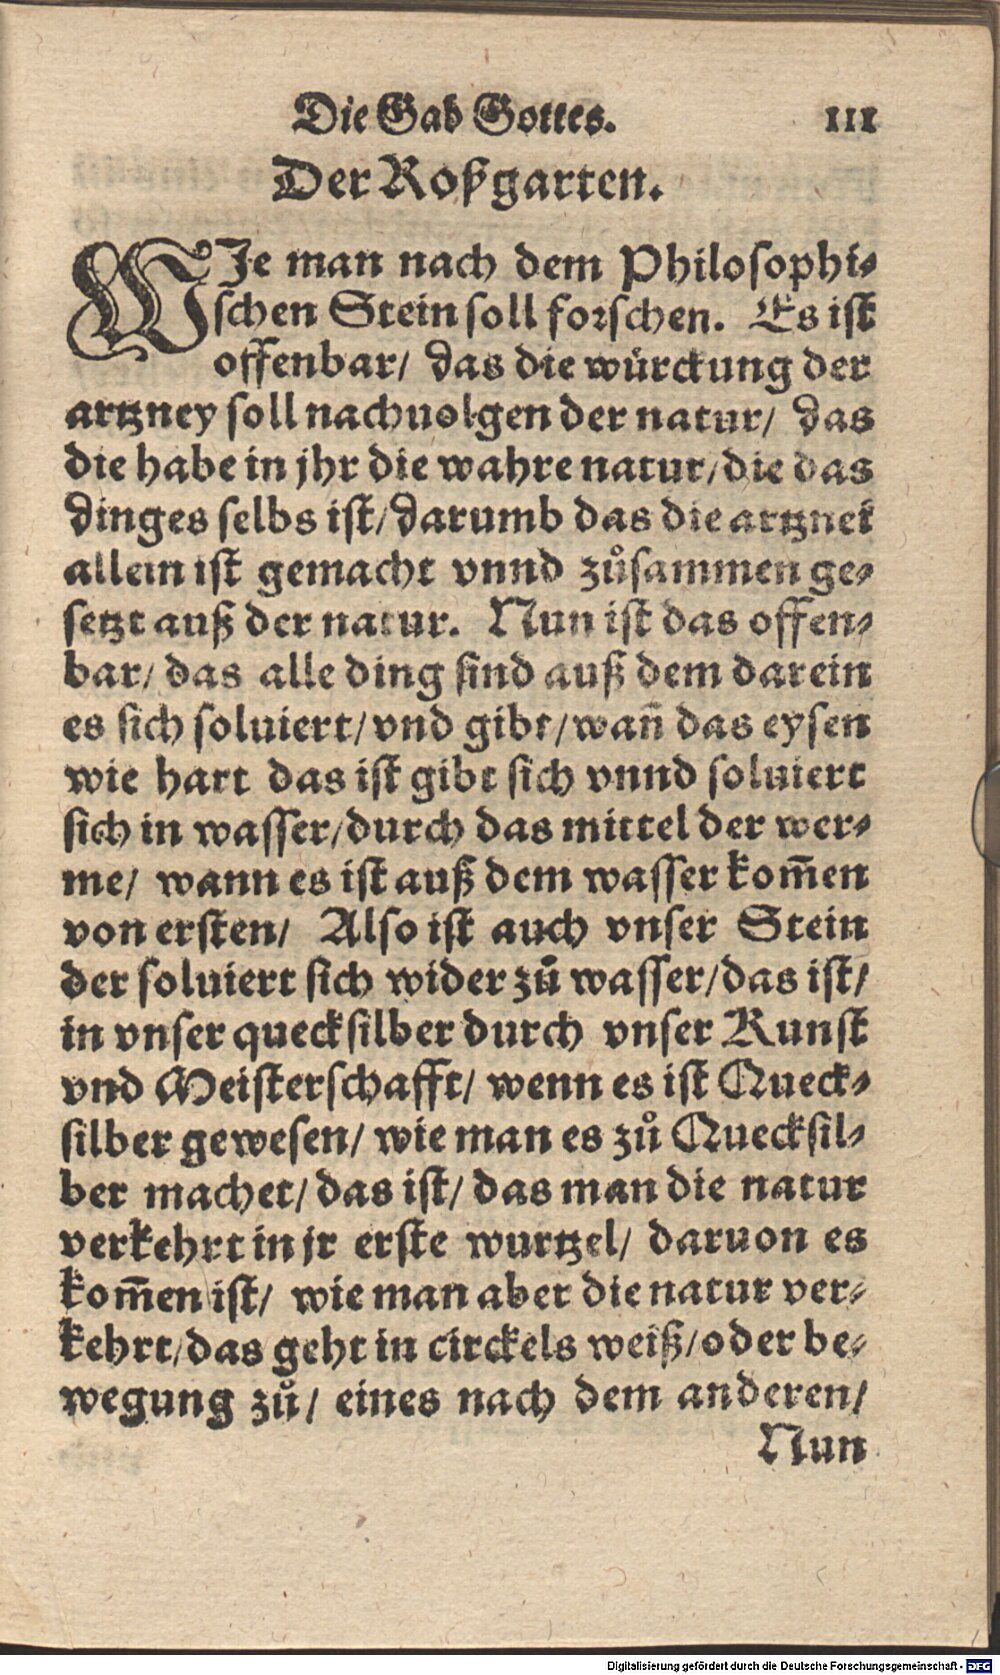 Die Gab Gottes. 111
Der Roßgarten.
WJe man nach dem Philosophi-
schen Stein soll forschen. Es ist
offenbar/ das die wuͤrckung der
artzney soll nachuolgen der natur/ das
die habe in jhr die wahre natur/die das
dinges selbs ist/darumb das die artznei
allein ist gemacht vnnd zuͦsammen ge-
setzt auß der natur. Nun ist das offen-
bar/ das alle ding sind auß dem darein
es sich soluiert/vnd gibt/wañ das eysen
wie hart das ist gibt sich vnnd soluiert
sich in wasser/durch das mittel der wer-
me/ wann es ist auß dem wasser kom̃en
von ersten/ Also ist auch vnser Stein
der soluiert sich wider zuͦ wasser/das ist/
in vnser quecksilber durch vnser Kunst
vnd Meisterschafft/ wenn es ist Queck-
silber gewesen/ wie man es zuͦ Quecksil-
ber machet/das ist/ das man die natur
verkehrt in jr erste wurtzel/ daruon es
kom̃en ist/ wie man aber die natur ver-
kehrt/das geht in circkels weiß/oder be-
wegung zuͦ/ eines nach dem anderen/
Nun
Digitalisierung gefördert durch die Deutsche Forschungsgemeinschaft - DFG